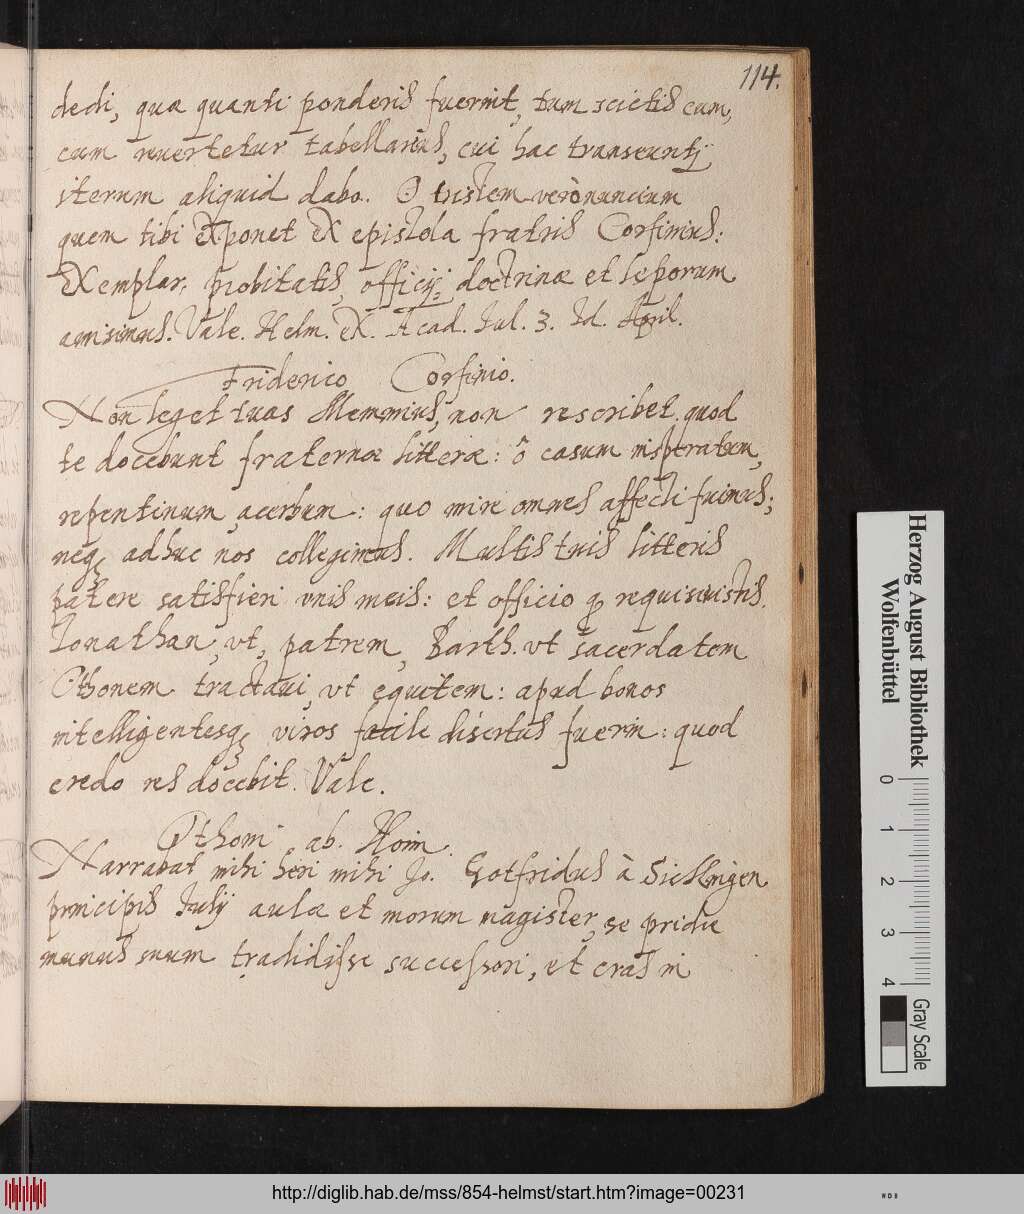 114.
dedi, quae quanti ponderis fuerint, tum scietis cum,
cum reuertetur tabellarius, cui hac transeunti
iterum aliquid dabo. O tristem verò nuncium
quem tibi exponet ex epistola fratris Corfinius:
Exemplar probitatis, officij doctrinae et leporum
amisimus. Vale. Helm. ex Acad. Iul. 3. Id. April.
Friderico Corfinio.
Non leget tuas Memmius, non rescribet quod
te docebunt fraternae litterae: ô casum insperatum,
repentinum, acerbum: quo mire omnes affecti fuimus;
neq adhuc nos collegimus. Multis tuis litteris
patere satisfieri vnis meis: et officio q requisiuistis.
Ionathan, vt, patrem, Barth. vt sacerdatem
Othonem tractaui, vt equitem: apud bonos
intelligentesq viros facile disertus fuerin: quod
credo res docebit. Vale.
Othoni ab. Hoim.
Narrabat mihi heri mihi Jo. Gotfridus à Sickingen
principis Iulij aulae et morum magister, se pridie
munus suum tradidisse successori, et cras in
Herzog August Bibliothek
Wolfenbüttel
0 1 2 3 4
Gray Scale
http://diglib.hab.de/mss/854-helmst/start.htm?image=00231
WDB